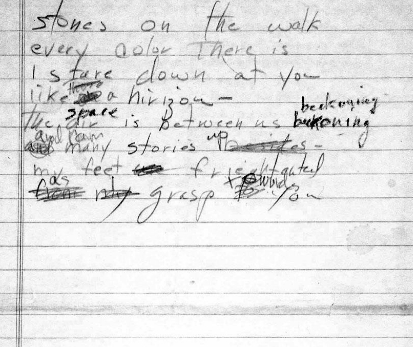 stones on the walk
every color there is
I stare down at you
like a hirizon -
beckoning
space
The is between us beckoning
and I am
many stories up
my feet frightented
as
my grasp you